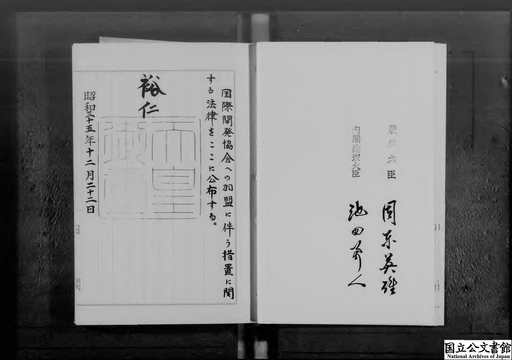 農林大臣 周東英雄
内閣総理大臣 池田勇人
国際開発協会への加盟に伴う措置に関
する法律をここに公布する。
裕仁
天皇
御璽
昭和三十五年十二月二十二日
国立公文書館
National Archives of Japan